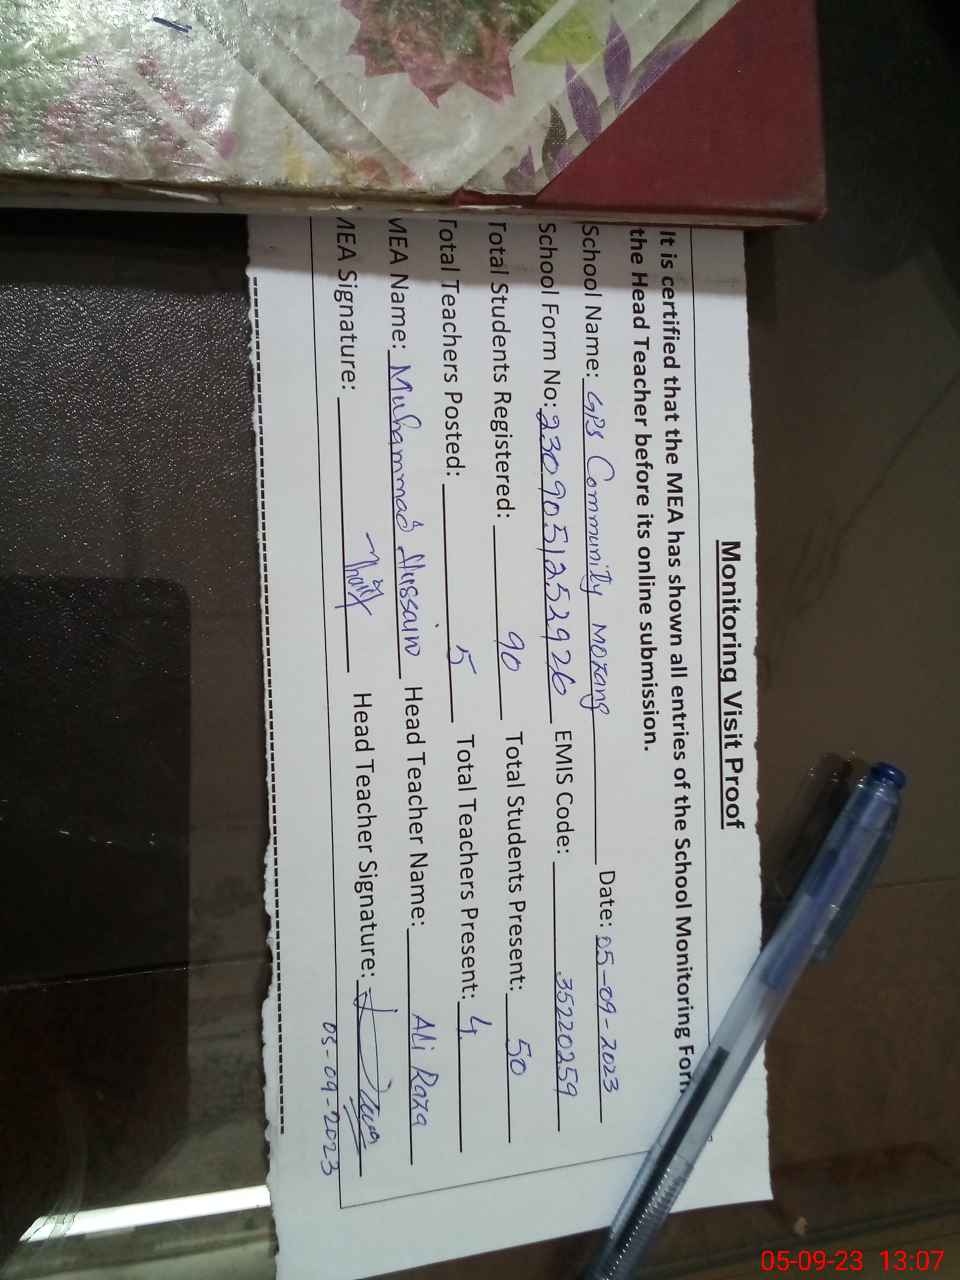 Monitoring Visit Proof
It is certified that the MEA has shown all entries of the School Monitoring For
the Head Teacher before its online submission.
School Name: GPS Community Mozang Date: 05-09-2023
School Form No: 2309051252926 EMIS Code: 35220259
Total Students Registered: 90 Total Students Present: 50
Total Teachers Posted: 5 Total Teachers Present: 4
MEA Name: Muhammad Hussain Head Teacher Name: Ali Raza
MEA Signature: Head Teacher Signature:
05-09-2023
05-09-23 13:07